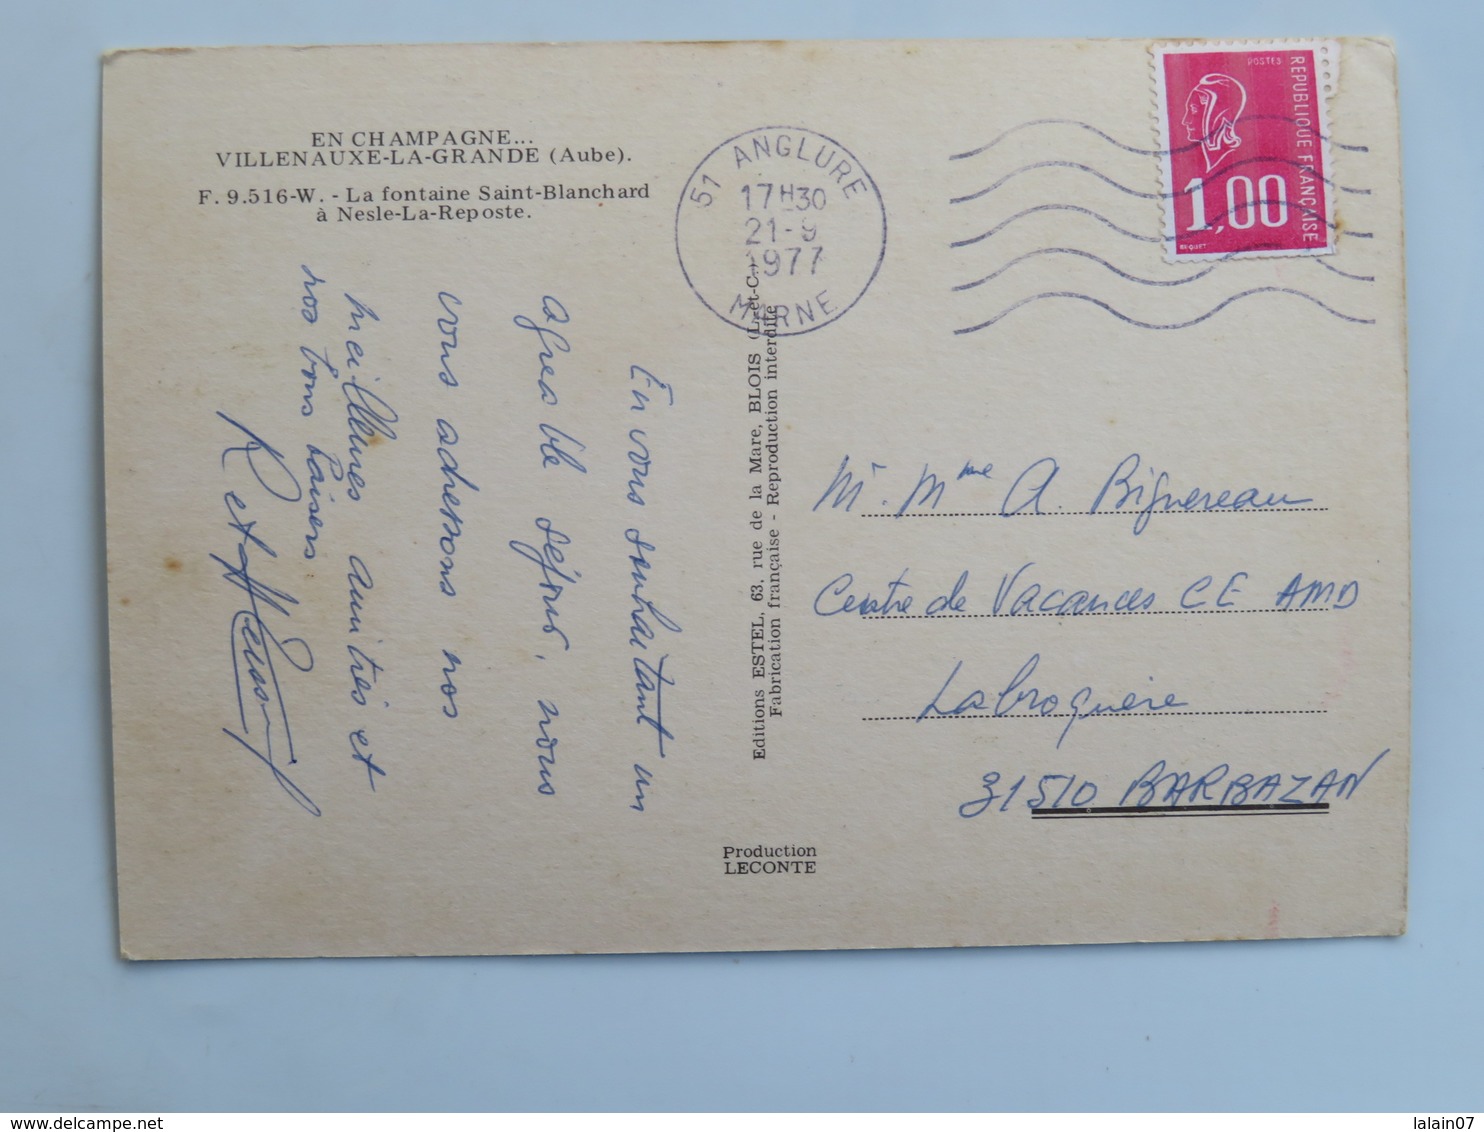 EN CHAMPAGNE...
VILLENAUXE-LA-GRANDE (Aube).
F. 9.516-W. - La fontaine Saint-Blanchard
à Nesle-La-Reposte.
51 ANGLURE
17H30
21-9
1977
MARNE
POSTES
REPUBLIQUE FRANÇAISE
1,00
BEQUET
En vous souhaitant un
agreable séjour, nous
vous adressons nos
meilleures amitiés et
nos bons baisers
R et
Editions ESTEL, 63, rue de la Mare, BLOIS (L.-et-C.)
Fabrication française - Reproduction interdite
Mr. Mme A. Bignereau
Centre de Vacances CE AMD
Labroquère
31510 BARBAZAN
Production
LECONTE
delcampe.net
lalain07